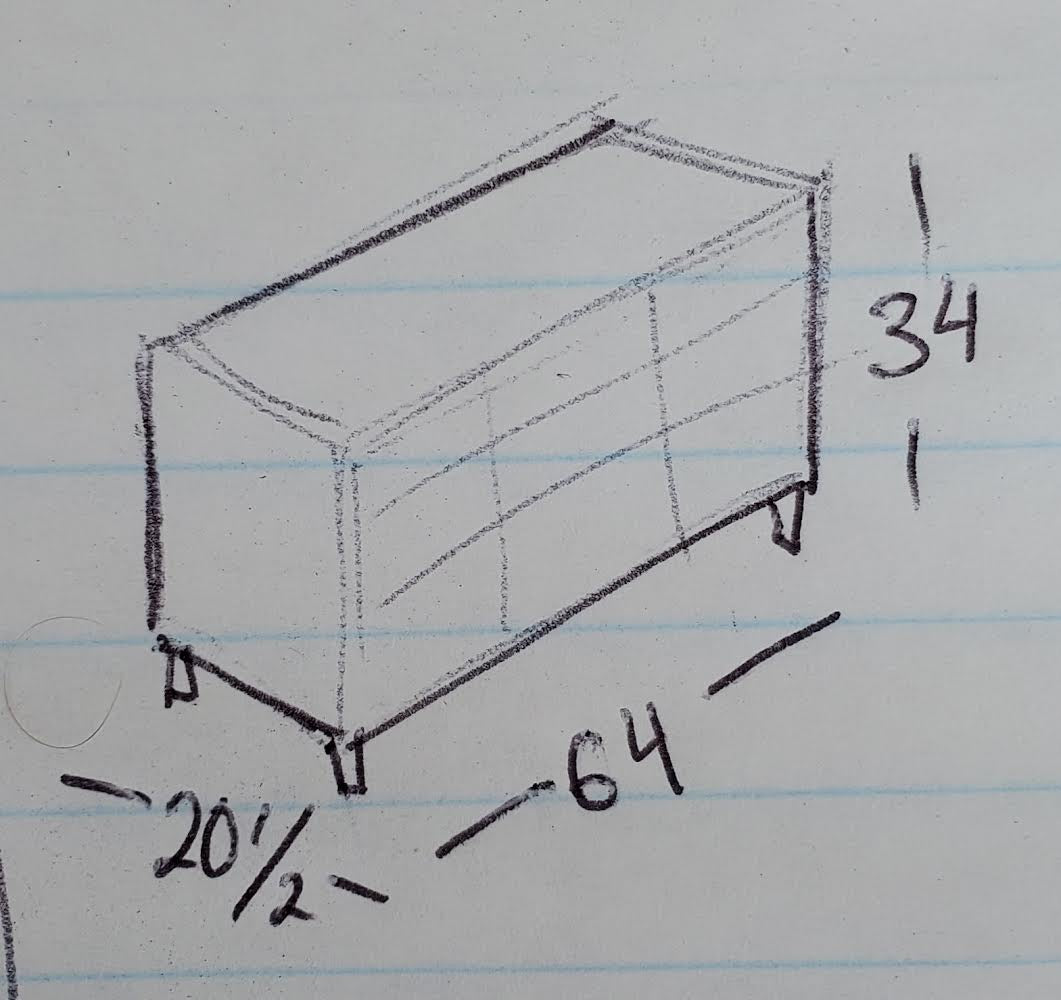 34
64
20 1/2